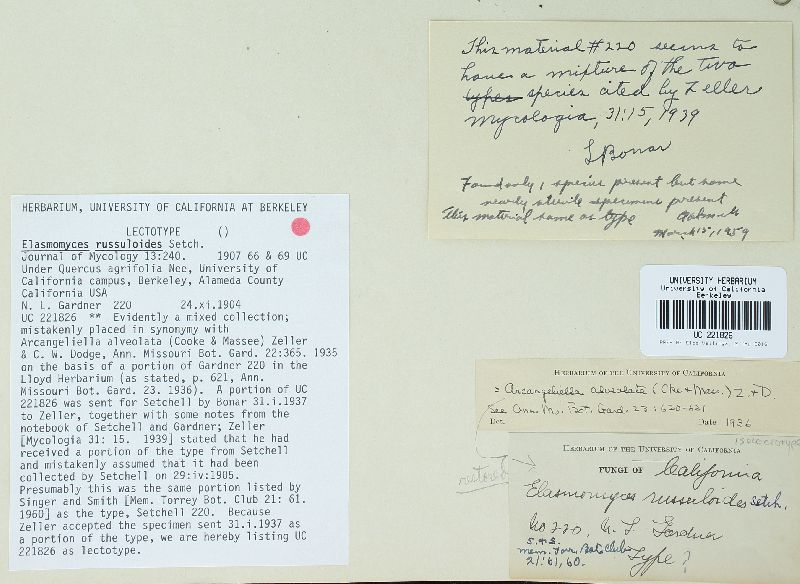 This material #220 seems to
have a mixture of the two
types species cited by Zeller
Mycologia, 31:15, 1939
L Bonar
Found only 1 species present but some
nearly sterile specimens present
This material same as type
March 15, 1959
HERBARIUM, UNIVERSITY OF CALIFORNIA AT BERKELEY
LECTOTYPE ()
Elasmomyces russuloides Setch.
Journal of Mycology 13:240. 1907 66 & 69 UC
Under Quercus agrifolia Nee, University of
California campus, Berkeley, Alameda County
California USA
N. L. Gardner 220 24.xi.1904
UC 221826 ** Evidently a mixed collection;
mistakenly placed in synonymy with
Arcangeliella alveolata (Cooke & Massee) Zeller
& C. W. Dodge, Ann. Missouri Bot. Gard. 22:365. 1935
on the basis of a portion of Gardner 220 in the
Lloyd Herbarium (as stated, p. 621, Ann.
Missouri Bot. Gard. 23. 1936). A portion of UC
221826 was sent for Setchell by Bonar 31.i.1937
to Zeller, together with some notes from the
notebook of Setchell and Gardner; Zeller
[Mycologia 31: 15. 1939] stated that he had
received a portion of the type from Setchell
and mistakenly assumed that it had been
collected by Setchell on 29:iv:1905.
Presumably this was the same portion listed by
Singer and Smith [Mem. Torrey Bot. Club 21: 61.
1960] as the type, Setchell 220. Because
Zeller accepted the specimen sent 31.i.1937 as
a portion of the type, we are hereby listing UC
221826 as lectotype.
UNIVERSITY HERBARIUM
University of California
Berkeley
UC 221826
HERBARIUM OF THE UNIVERSITY OF CALIFORNIA
= Arcangeliella alveolata (Cke & Mass.) Z. & D
See Ann. Mo. Bot. Gard. 23:620-621
Det. Date 1936
restored
HERBARIUM OF THE UNIVERSITY OF CALIFORNIA
FUNGI OF California
Elasmomyces russuloides Setch.
No 220. N. L. Gardner
S. & S.
Mem. Torr. Bot. Club Type?
21:61, 60.